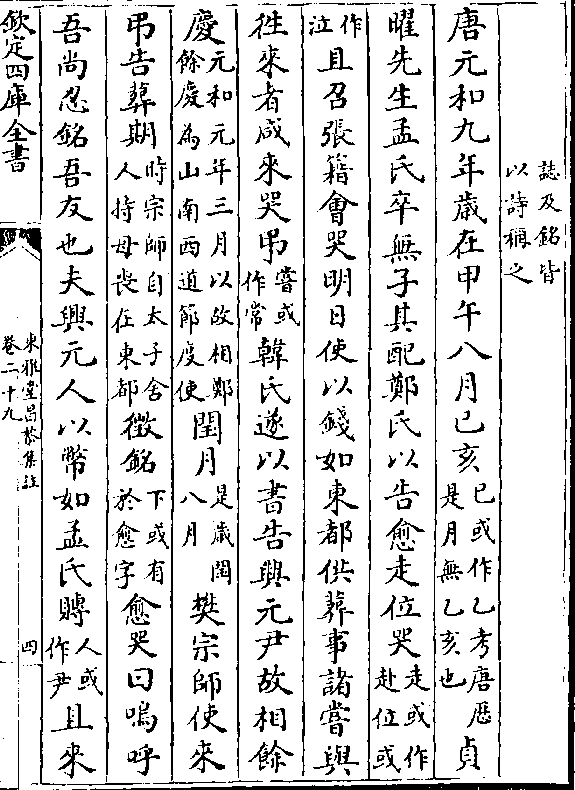 誌及銘皆
以詩稱之
唐元和九年歲在甲午八月已亥已或作乙考唐厯是月無乙亥也貞
曜先生孟氏卒無子其配鄭氏以告愈走位哭走或作赴位或
作泣且召張籍會哭明日使以錢如東都供葬事諸嘗與
徃來者咸來哭弔嘗或作常韓氏遂以書告興元尹故相餘
慶元和元年三月以故相鄭餘慶為山南西道節度使閏月是歲閏八月樊宗師使來
弔告葬期時宗師自太子舍人持母喪在東都徵銘下或有於愈字愈哭曰嗚呼
吾尚忍銘吾友也夫興元人以幣如孟氏賻人或作尹且來
欽定四庫全書
東雅堂昌黎集註
卷二十九
四